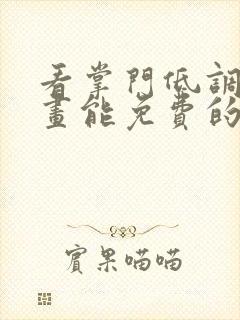 看掌門低調
畫能免費的
賓果喵喵